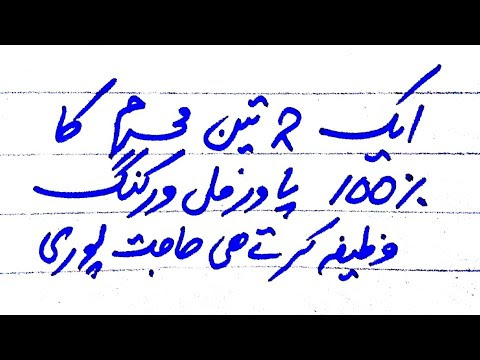 ایک 2 تین محرم کا
100% پاورفل ورکنگ
وظیفہ کرتے ھی حاجت پوری